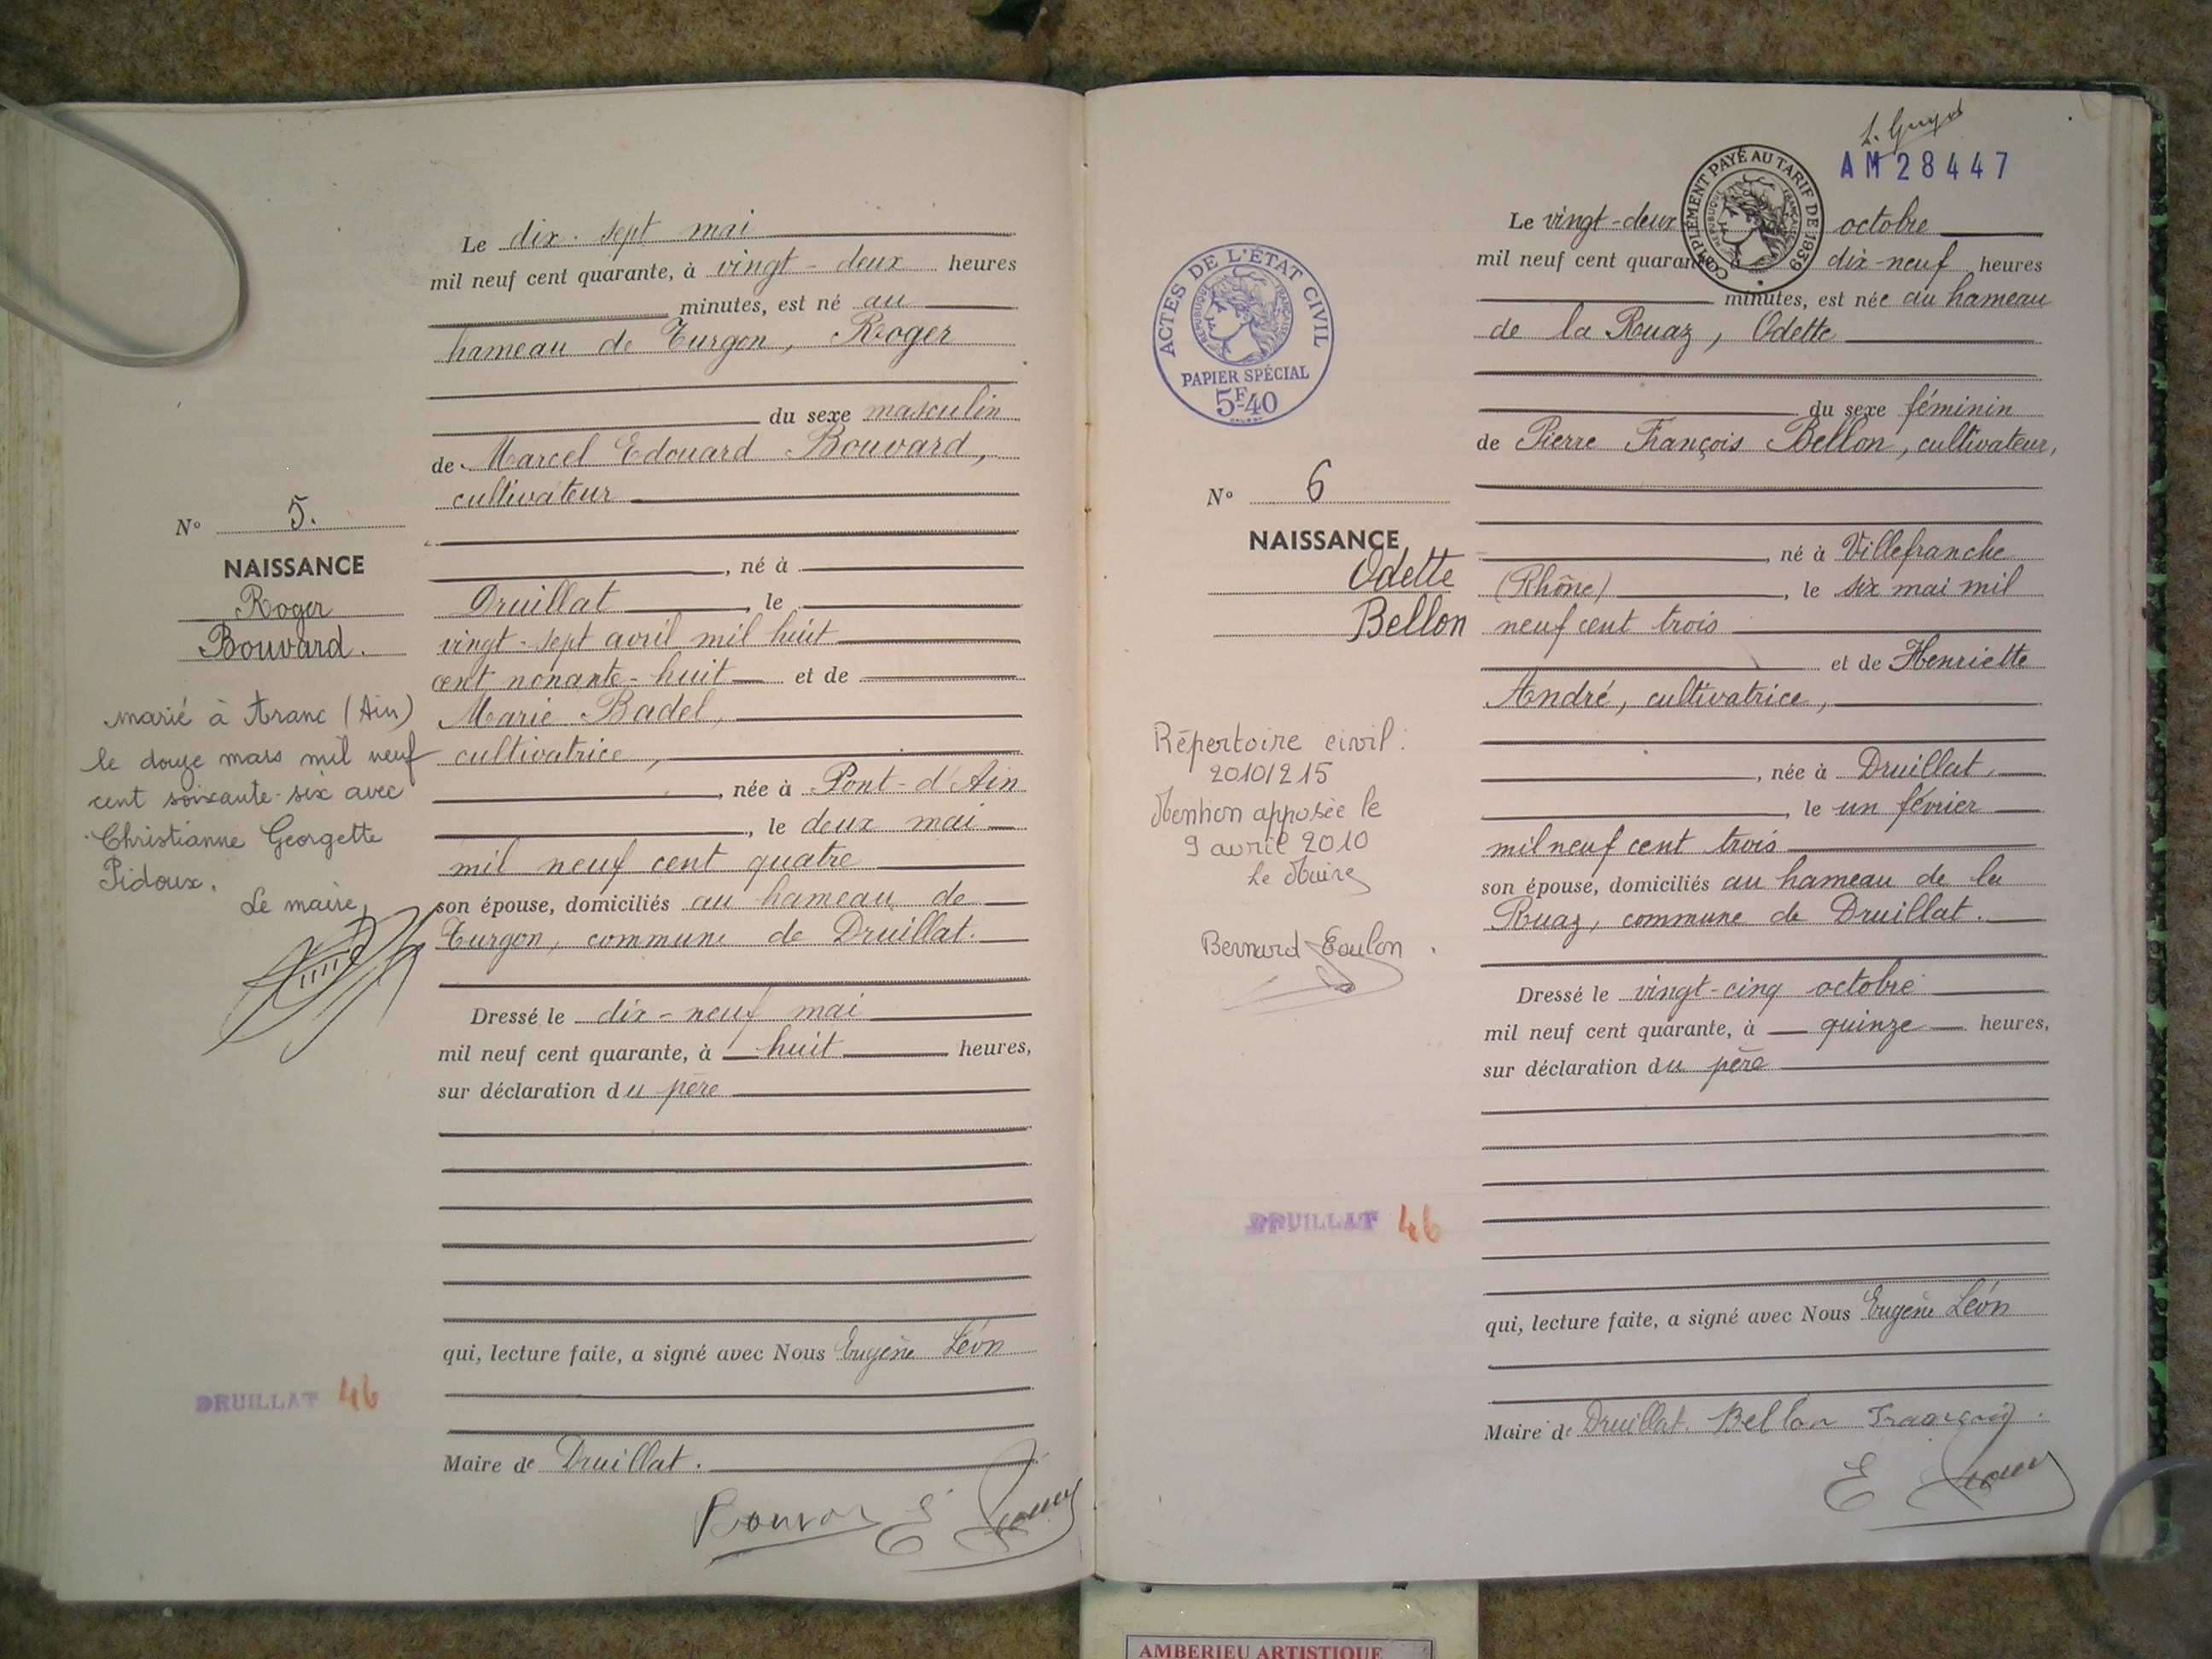 Le dix-sept mai
mil neuf cent quarante, à vingt-deux heures
minutes, est né au
hameau de Turgon, Roger
du sexe masculin
de Marcel Edouard Bouvard,
cultivateur
, né à
Druillat, le
vingt-sept avril mil huit
cent nonante-huit et de
Marie Badel,
cultivatrice,
, née à Pont-d'Ain
, le deux mai
mil neuf cent quatre
son épouse, domiciliés au hameau de
Turgon, commune de Druillat.
Dressé le dix-neuf mai
mil neuf cent quarante, à huit heures,
sur déclaration du père
qui, lecture faite, a signé avec Nous Eugène Léon
Maire de Druillat.
N° 5.
NAISSANCE
Roger
Bouvard.
marié à Aranc (Ain)
le douze mars mil neuf
cent soixante-six avec
Christianne Georgette
Pidoux.
Le maire,
DRUILLAT 46
L. Guyot
AM28447
COMPLÉMENT PAYÉ AU TARIF DE 1939
RÉPUBLIQUE FRANÇAISE
Le vingt-deux octobre
mil neuf cent quarante, à dix-neuf heures
minutes, est née au hameau
de la Ruaz, Odette
du sexe féminin
de Pierre François Bellon, cultivateur,
, né à Villefranche
(Rhône), le six mai mil
neuf cent trois
et de Henriette
André, cultivatrice,
, née à Druillat,
, le un février
mil neuf cent trois
son épouse, domiciliés au hameau de la
Ruaz, commune de Druillat.
Dressé le vingt-cinq octobre
mil neuf cent quarante, à quinze heures,
sur déclaration du père
qui, lecture faite, a signé avec Nous Eugène Léon
Maire de Druillat. Bellon François.
ACTES DE L'ÉTAT CIVIL
RÉPUBLIQUE FRANÇAISE
PAPIER SPÉCIAL
5F40
N° 6
NAISSANCE
Odette
Bellon
Répertoire civil :
2010/215
Mention apposée le
9 avril 2010
Le Maire
Bernard Toulon.
DRUILLAT 46
AMBERIEU ARTISTIQUE